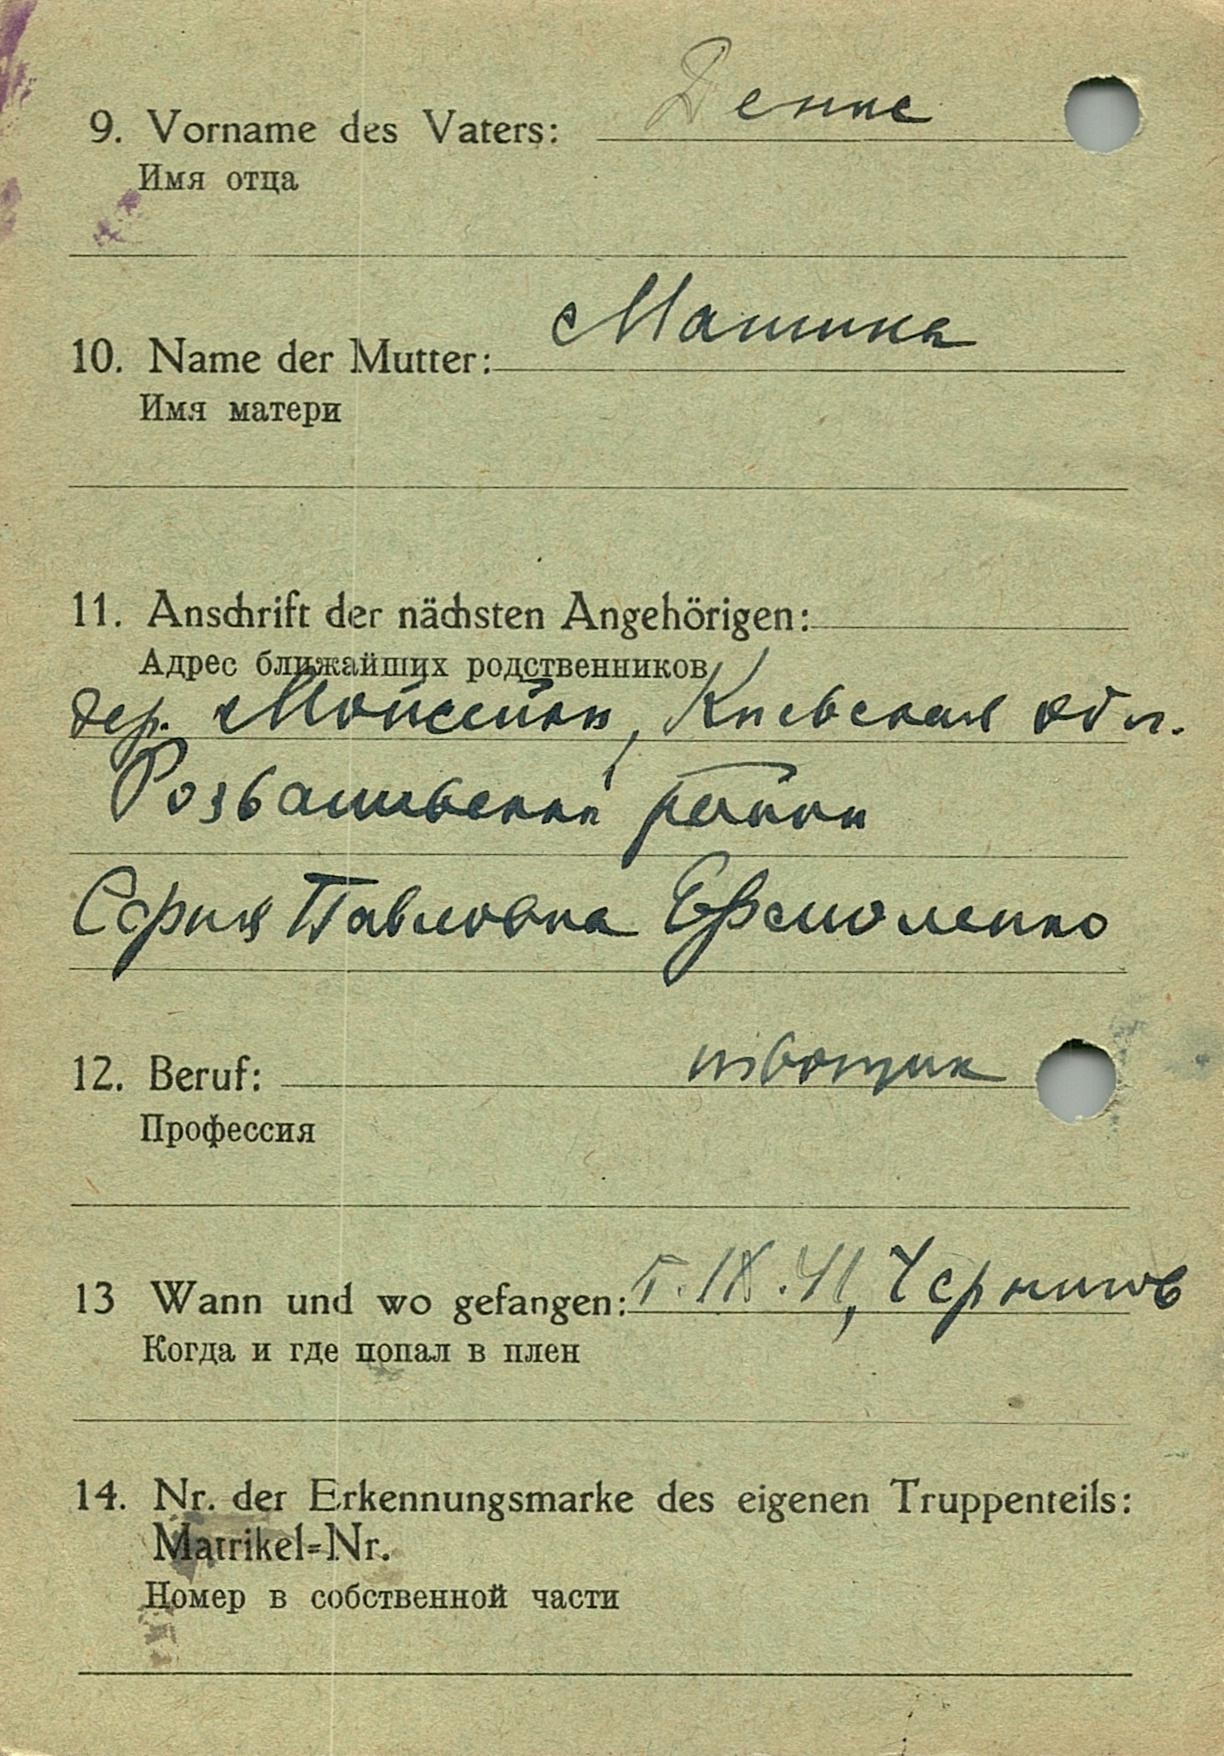 9. Vorname des Vaters: Денис
Имя отца
10. Name der Mutter:
Имя матери
11. Anschrift der nächsten Angehörigen:
Адрес ближайших родственников
дер. Мойсейки, Киевская обл.
Розважевский район
София Павловна Ермоленко
12. Beruf:
Профессия
13 Wann und wo gefangen: 5.IX.41, Чернигов
Когда и где попал в плен
14. Nr. der Erkennungsmarke des eigenen Truppenteils:
Matrikel=Nr.
Номер в собственной части